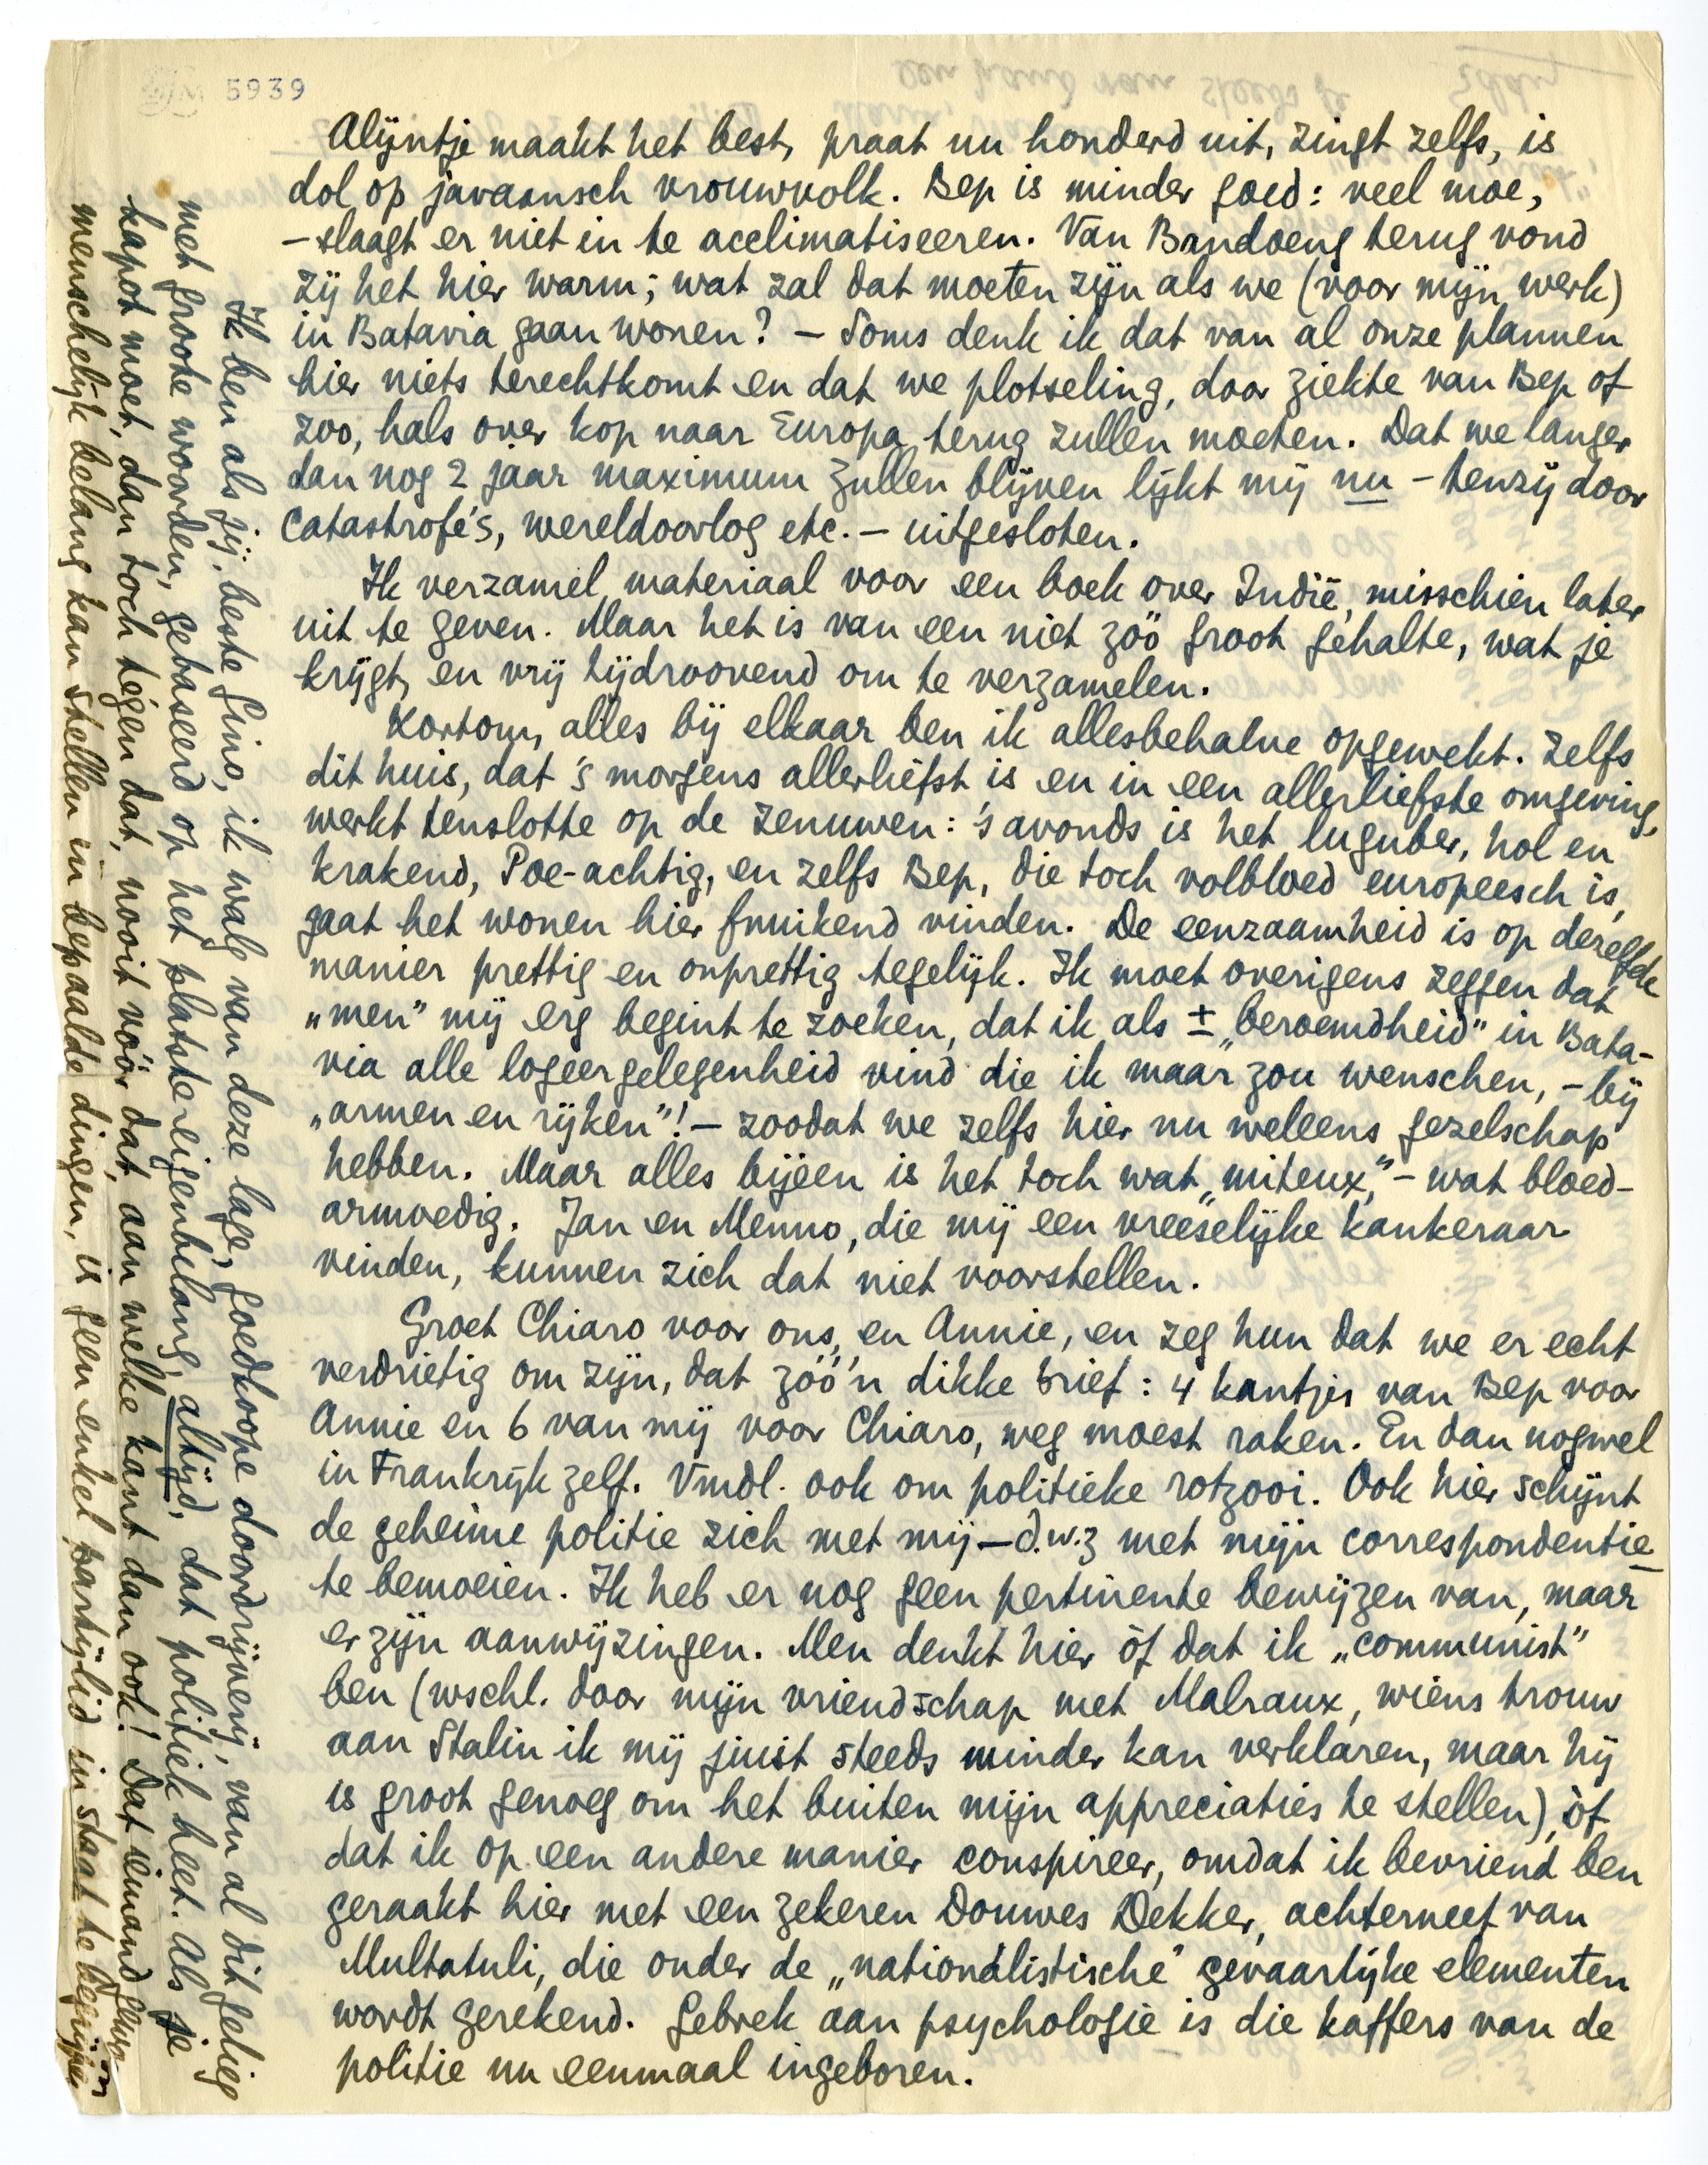 5939
Alijntje maakt het best, praat nu honderd uit, zingt zelfs, is
dol op javaansch vrouwvolk. Bep is minder goed: veel moe,
– slaagt er niet in te acclimatiseeren. Van Bandoeng terug vond
zij het hier warm; wat zal dat moeten zijn als we (voor mijn werk)
in Batavia gaan wonen? – Soms denk ik dat van al onze plannen
hier niets terechtkomt en dat we plotseling, door ziekte van Bep of
zoo, hals over kop naar Europa terug zullen moeten. Dat we langer
dan nog 2 jaar maximum zullen blijven lijkt mij nu – tenzij door
catastrofe's, wereldoorlog etc. – uitgesloten.
Ik verzamel materiaal voor een boek over Indië, misschien later
uit te geven. Maar het is van een niet zóó groot gehalte, wat je
krijgt, en vrij tijdroovend om te verzamelen.
Kortom, alles bij elkaar ben ik allesbehalve opgewekt. Zelfs
dit huis, dat 's morgens allerliefst is en in een allerliefste omgeving,
werkt tenslotte op de zenuwen: 's avonds is het luguber, hol en
krakend, Poe-achtig, en zelfs Bep, die toch volbloed europeesch is,
gaat het wonen hier fnuikend vinden. De eenzaamheid is op dezelfde
manier prettig en onprettig tegelijk. Ik moet overigens zeggen dat
„men” mij erg begint te zoeken, dat ik als ± „beroemdheid” in Bata-
via alle logeergelegenheid vind die ik maar zou wenschen, – bij
„armen en rijken”! – zoodat we zelfs hier nu weleens gezelschap
hebben. Maar alles bijeen is het toch wat „miteux,” – wat bloed-
armoedig. Jan en Menno, die mij een vreeselijke kankeraar
vinden, kunnen zich dat niet voorstellen.
Groet Chiaro voor ons, en Annie, en zeg hun dat we er echt
verdrietig om zijn, dat zóó'n dikke brief: 4 kantjes van Bep voor
Annie en 6 van mij voor Chiaro, weg moest raken. En dan nogwel
in Frankrijk zelf. Vmdl. ook om politieke rotzooi. Ook hier schijnt
de geheime politie zich met mij – d.w.z met mijn correspondentie –
te bemoeien. Ik heb er nog geen pertinente bewijzen van, maar
er zijn aanwijzingen. Men denkt hier òf dat ik „communist”
ben (wschl. door mijn vriendschap met Malraux, wiens trouw
aan Stalin ik mij juist steeds minder kan verklaren, maar hij
is groot genoeg om het buiten mijn appreciaties te stellen), òf
dat ik op een andere manier conspireer, omdat ik bevriend ben
geraakt hier met een zekeren Douwes Dekker, achterneef van
Multatuli, die onder de „nationalistische” gevaarlijke elementen
wordt gerekend. Gebrek aan psychologie is die kaffers van de
politie nu eenmaal ingeboren.
Ik ben als jij, beste Gino, ik walg van deze lage, goedkoope doordrijverij, van al dit gelieg
met groote woorden, gebaseerd op het platste eigenbelang, altijd, dat politiek heet. Als je
kapot moet, dan toch tégen dat, nooit vóór dat, aan welke kant dan ook! Dat iemand geen
menschelijk belang kan stellen in bepaalde dingen, is geen enkel partijlid in staat te begrijpen